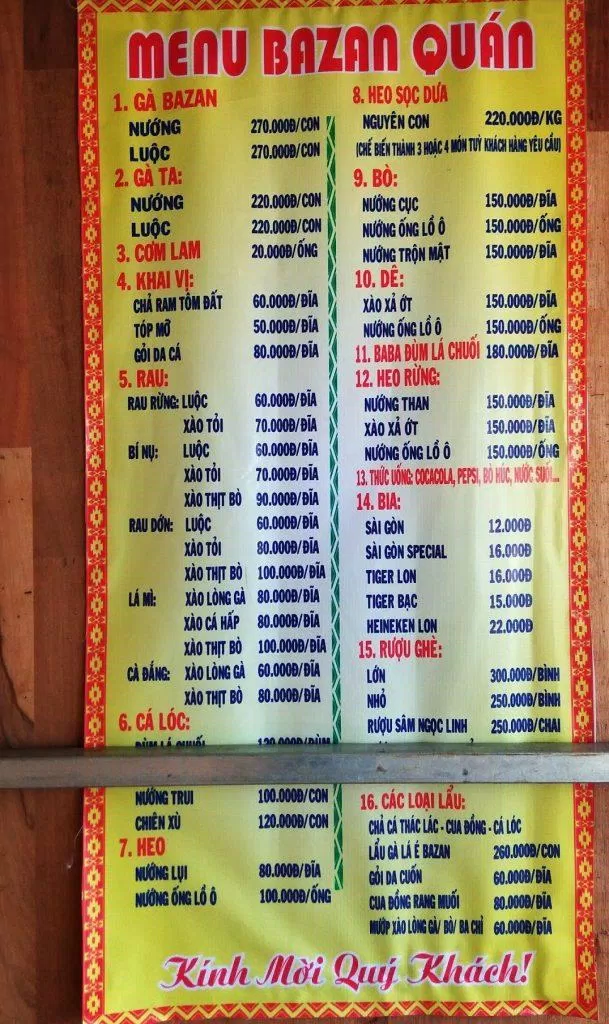 MENU BAZAN QUÁN
1. GÀ BAZAN
NƯỚNG 270.000Đ/CON
LUỘC 270.000Đ/CON
2. GÀ TA:
NƯỚNG 220.000Đ/CON
LUỘC 220.000Đ/CON
3. CƠM LAM 20.000Đ/ỐNG
4. KHAI VỊ:
CHẢ RAM TÔM ĐẤT 60.000Đ/ĐĨA
TÓP MỠ 50.000Đ/ĐĨA
GỎI DA CÁ 80.000Đ/ĐĨA
5. RAU:
RAU RỪNG: LUỘC 60.000Đ/ĐĨA
XÀO TỎI 70.000Đ/ĐĨA
BÍ NỤ: LUỘC 60.000Đ/ĐĨA
XÀO TỎI 70.000Đ/ĐĨA
XÀO THỊT BÒ 90.000Đ/ĐĨA
RAU DỚN: LUỘC 60.000Đ/ĐĨA
XÀO TỎI 80.000Đ/ĐĨA
XÀO THỊT BÒ 100.000Đ/ĐĨA
LÁ MÌ: XÀO LÒNG GÀ 80.000Đ/ĐĨA
XÀO CÁ HẤP 80.000Đ/ĐĨA
XÀO THỊT BÒ 100.000Đ/ĐĨA
CÀ ĐẮNG: XÀO LÒNG GÀ 60.000Đ/ĐĨA
XÀO THỊT BÒ 80.000Đ/ĐĨA
6. CÁ LÓC:
ĐÙM LÁ CHUỐI 120.000Đ/ĐÙM
NƯỚNG TRUI 100.000Đ/CON
CHIÊN XÙ 120.000Đ/CON
7. HEO
NƯỚNG LỤI 80.000Đ/ĐĨA
NƯỚNG ỐNG LỒ Ô 100.000Đ/ỐNG
8. HEO SỌC DƯA
NGUYÊN CON 220.000Đ/KG
(CHẾ BIẾN THÀNH 3 HOẶC 4 MÓN TUỲ KHÁCH HÀNG YÊU CẦU)
9. BÒ:
NƯỚNG CỤC 150.000Đ/ĐĨA
NƯỚNG ỐNG LỒ Ô 150.000Đ/ỐNG
NƯỚNG TRỘN MẬT 150.000Đ/ĐĨA
10. DÊ:
XÀO XẢ ỚT 150.000Đ/ĐĨA
NƯỚNG ỐNG LỒ Ô 150.000Đ/ỐNG
11. BABA ĐÙM LÁ CHUỐI 180.000Đ/ĐĨA
12. HEO RỪNG:
NƯỚNG THAN 150.000Đ/ĐĨA
XÀO XẢ ỚT 150.000Đ/ĐĨA
NƯỚNG ỐNG LỒ Ô 150.000Đ/ỐNG
13. THỨC UỐNG: COCACOLA, PEPSI, BÒ HÚC, NƯỚC SUỐI...
14. BIA:
SÀI GÒN 12.000Đ
SÀI GÒN SPECIAL 16.000Đ
TIGER LON 16.000Đ
TIGER BẠC 15.000Đ
HEINEKEN LON 22.000Đ
15. RƯỢU GHÈ:
LỚN 300.000Đ/BÌNH
NHỎ 250.000Đ/BÌNH
RƯỢU SÂM NGỌC LINH 250.000Đ/CHAI
16. CÁC LOẠI LẨU:
CHẢ CÁ THÁC LÁC - CUA ĐỒNG - CÁ LÓC
LẨU GÀ LÁ É BAZAN 260.000Đ/CON
GỎI DA CUỐN 60.000Đ/ĐĨA
CUA ĐỒNG RANG MUỐI 80.000Đ/ĐĨA
MƯỚP XÀO LÒNG GÀ/ BÒ/ BA CHỈ 60.000Đ/ĐĨA
Kính Mời Quý Khách!